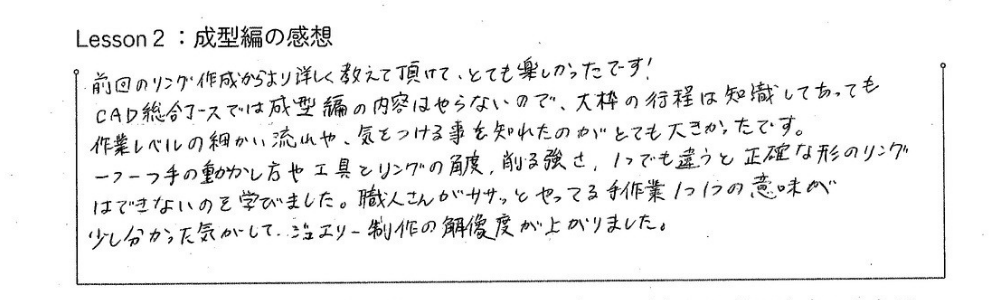 Lesson 2：成型編の感想
前回のリング作成からより詳しく教えて頂けて、とても楽しかったです！
CAD総合コースでは成型編の内容はやらないので、大枠の行程は知識してあっても
作業レベルの細かい流れや、気をつける事を知れたのがとても大きかったです。
一つ一つ手の動かし方や工具とリングの角度、削る強さ、1つでも違うと正確な形のリング
はできないのを学びました。職人さんがササッとやってる手作業1つ1つの意味が
少し分かった気がして、ジュエリー制作の解像度が上がりました。